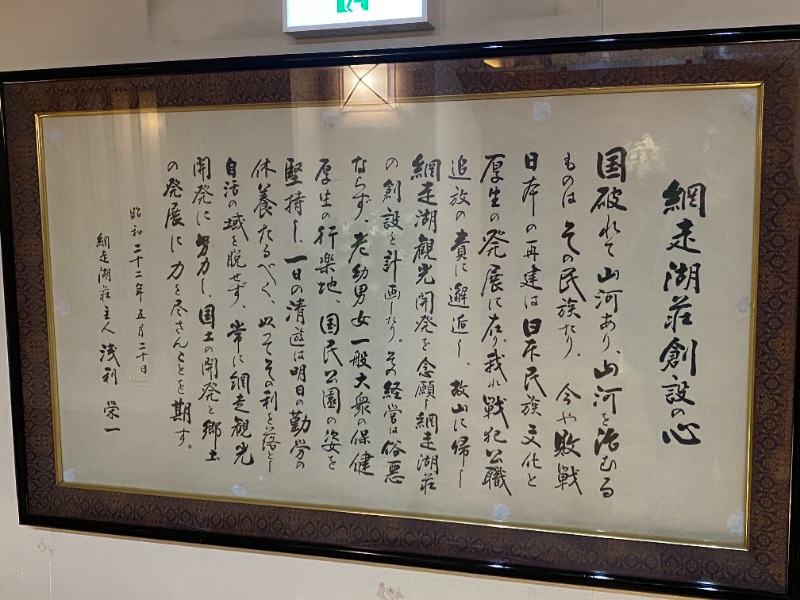 網走湖荘創設の心
国破れて山河あり、山河を治むる
ものは その民族たり。今や敗戦
日本の再建は 日本民族 文化と
厚生の発展に在り。我れ戦犯公職
追放の責に邂逅し、故山に帰し
網走湖観光開発を念願し網走湖荘
の創設を計画したり。その経営は俗悪
ならず、老幼男女一般大衆の保健
厚生の行楽地、国民公園の姿を
堅持し、一日の清遊は明日の勤労の
休養たるべく、以つてその利を落とし
自活の域を脱せず、常に網走観光
開発に努力し、国土の開発と郷土
の発展に力を尽さんことを期す。
昭和二十二年五月二十日
網走湖荘主人 浅利 栄一